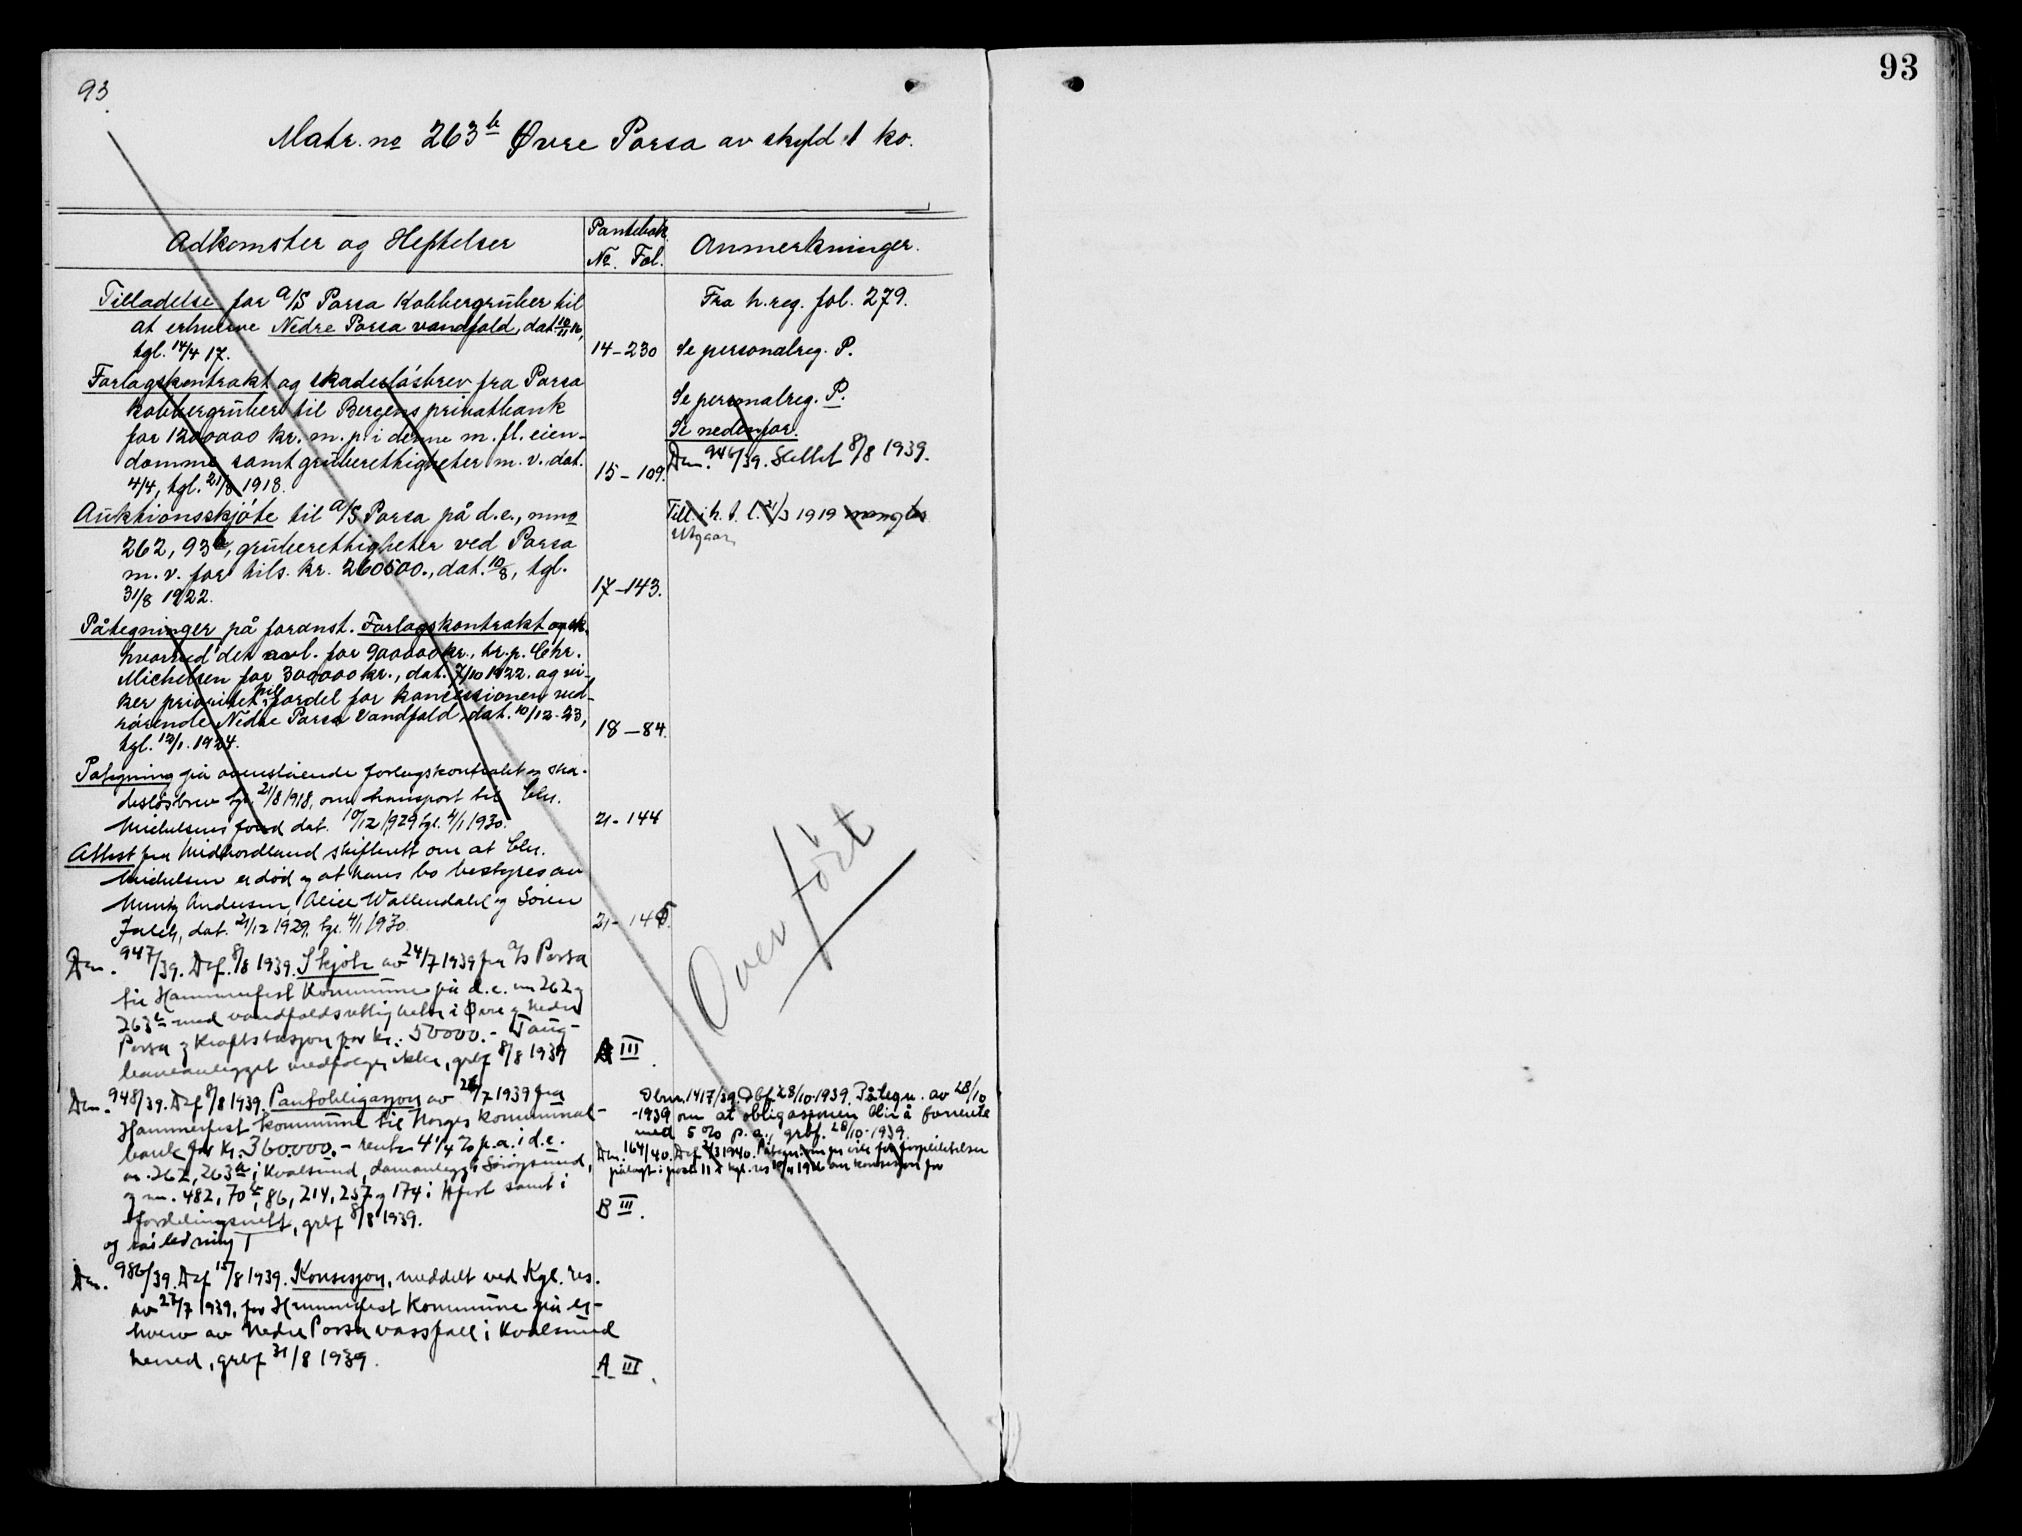 93
93
Matr. no 263b Øvre Porsa av skyld 1 ko.
Adkomster og Heftelser
Pantebok
No. Fol.
Anmerkninger.
Tilladelse for A/S Porsa Kobbergruber til
at erhverve Nedre Porsa vandfald, dat. 10/11 16,
tgl. 14/4 17.
14-230
Fra h.reg. fol. 279.
Se personalreg. P.
Forlagskontrakt og skadesløsbrev fra Porsa
kobbergruber til Bergens privatbank
for 1200000 kr. m. p. i denne m. fl. eien-
domme samt gruberettigheter m. v. dat.
4/4, tgl. 21/8 1918.
15-109.
Se personalreg. P.
Se nedenfor.
Dnr. 946/39. Slettet 8/8 1939.
Auktionsskjøte til A/S Porsa på d.e., mno
262, 93b, gruberettigheter ved Porsa
m. v. for tils. kr. 260500., dat. 10/8, tgl.
31/8 1922.
17-143.
Till. i h. t. l. 21/3 1919 mangler
Utgaar
Påtegninger på foranst. Forlagskontrakt og sk.
hvorved det nvl. for 900000 kr., tr.p. Chr.
Michelsen for 300000 kr., dat. 7/10 1922. og vi-
ker prioritet til fordel for koncessionen ved-
rørende Nedre Porsa Vandfald, dat. 10/12-23,
tgl. 12/1. 1924.
18-84.
Påtegning på ovenstående forlagskontrakt og ska-
desløsbrev tgl. 21/8 1918, om transport til Chr.
Michelsens fond dat. 10/12 1929 tgl. 4/1 1930.
21-144
Attest fra Midhordland skifterett om at Chr.
Michelsen er død og at hans bo bestyres av
Andersen, Alice Wallendahl og Sören
Falch, dat. 21/12 1929, tgl. 4/1 1930.
21-145.
Dnr. 947/39. Dbf. 8/8 1939. Skjøte av 24/7 1939 fra A/s Porsa
til Hammerfest Kommune på d.e. nr 262 og
263b med vandfaldsrettigheter i Øvre og Nedre
Porsa og Kraftstasjon for kr. 50000.- Taug-
baneanlegget medfølger ikke, grbf 8/8 1939
A III.
Overført
Dnr. 948/39. Dbf 8/8 1939. Pantobligasjon av 26/7 1939 fra
Hammerfest kommune til Norges kommunal-
bank for kr. 360.000.- rente 4 1/4 % p.a. i d.e.
nr. 262, 263b i Kvalsund, damanlegg i Sörøysund,
og nr. 482, 70b, 86, 214, 257 og 174 i Hfest samt i
fordelingsnett, grbf 8/8 1939.
og rørledning
B III.
Dnr. 1417/39. Dbf 28/10-1939. Påtegn. av 28/10
-1939 om at obligasjonen blir å forrente
med 5 % p. a., grbf. 28/10-1939.
Dnr. 164/40. Dbf 2/3 1940. Påtegn. om pr. vik for forpliktelser
pålagt i post 11 i kgl. res om konsesjon for
Dnr. 986/39. Dbf 15/8 1939. Konsesjon, meddelt ved Kgl. res.
av 27/7 1939, for Hammerfest Kommune på er-
hverv av Nedre Porsa vassfall i Kvalsund
herred, grbf 31/8 1939.
A III.